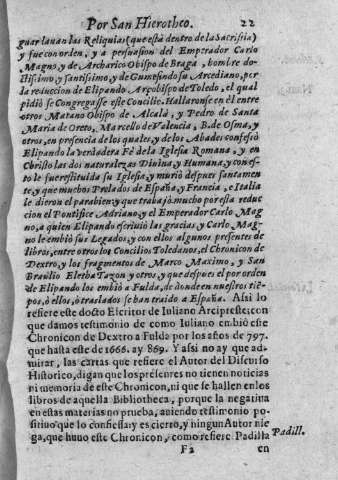 Por San Hierotheo. 22
guar lauan las Reliquias (que està dentro de la Sacristia)
y fue con orden, y a persuasion del Emperador Carlo
Magno, y de Archarico Obispo de Braga, hombre do-
ctissimo, y santissimo, y de Gumesindo su Arcediano, por
la reduccion de Elipando Arçobispo de Toledo, el qual
pidiò se Congregasse este Concilio. Hallaronse en èl entre
otros Matano Obispo de Alcalà, y Pedro de Santa
Maria de Oreto, Marcello de Valencia, B. de Osma, y
otros, en presencia de los quales, y de los Abades confessò
Elipando la verdadera Fè de la Iglesia Romana, y en
Christo las dos naturalezas Diuina, y Humana, y con es-
to le fue restituida su Iglesia, y muriò despues santamen
te, y que muchos Prelados de España, y Francia, e Italia
le dieron el parabien, y que trabajò mucho por esta reduc
cion el Pontifice Adriano, y el Emperador Carlo Mag
no, a quien Elipando escriuiò las gracias, y Carlo Mag-
no le embiò sus Legados, y con ellos algunos presentes de
libros, entre otros los Concilios Toledanos, el Chronicon de
Dextro, y los fragmentos de Marco Maximo, y San
Braulio Eleeba Tazon y otros, y que despues el por orden
de Elipando los embiò a Fulda, de donde en nuestros tie-
pos, ò ellos, ò traslados se han traido a España. Assi lo
refiere este docto Escritor de Iuliano Arcipreste; con
que damos testimonio de como Iuliano embiò este
Chronicon de Dextro a Fulda por los años de 797.
que hasta este de 1666. ay 869. Y assi no ay que ad-
mirar, las cartas que refiere el Autor del Discurso
Historico, digan que los presentes no tienen noticias
ni memoria de este Chronicon, ni que se hallen en los
libros de aquella Bibliotheca, porque la negatiua
en estas materias no prueba, auiendo testimonio po-
sitiuo que lo confiessa y es cierto, y ningun Autor nie
ga, que huuo este Chronicon, como refiere Padilla Padill.
F2 en